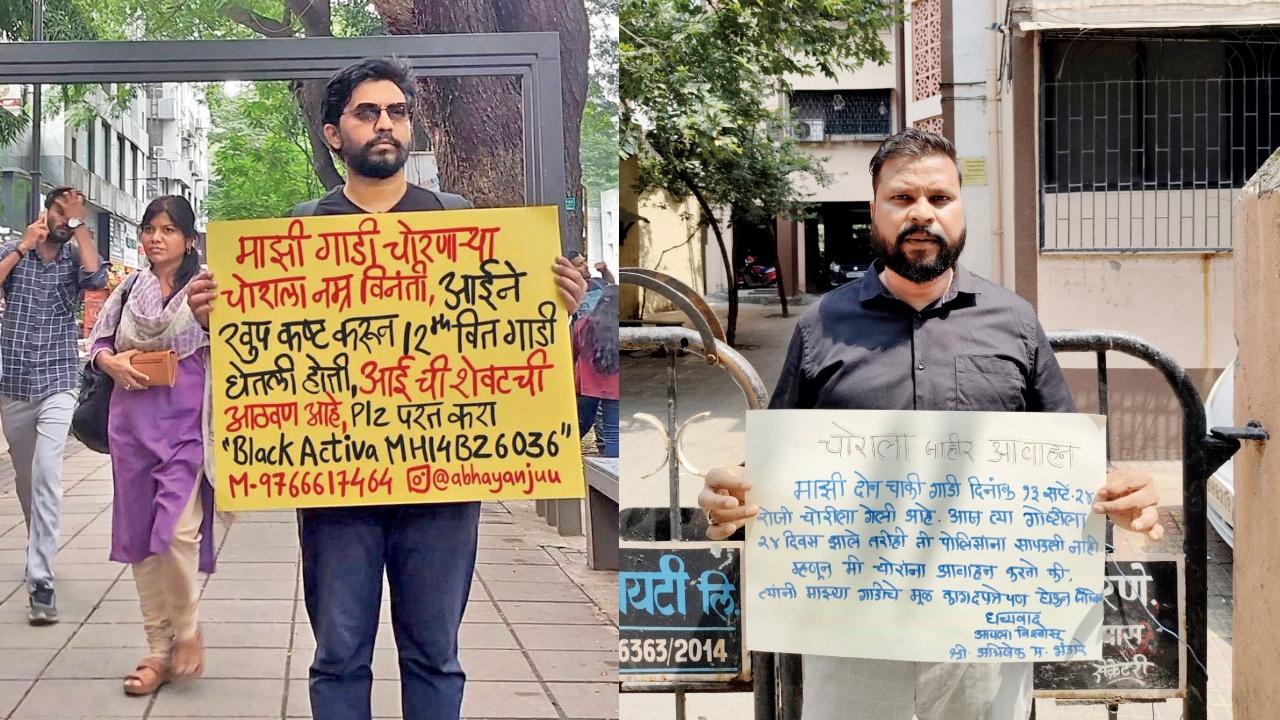 माझी गाडी चोरणाऱ्या
चोराला नम्र विनंती, आईने
खुप कष्ट करून 12th वित गाडी
घेतली होती, आई ची शेवटची
आठवण आहे, Plz परत करा
"Black Activa MH14BZ6036"
M-9766617464 @abhayanjuu
चोराला जाहीर आवाहन
माझी दोन चाकी गाडी दिनांक १३ सप्टें.२४
रोजी चोरीला गेली आहे. आज त्या गोष्टीला
२४ दिवस झाले तरीही ती पोलिसांना सापडली नाही
म्हणून मी चोरांना आवाहन करतो की,
त्यांनी माझ्या गाडीचे मूळ कागदपत्रे पण घेऊन
धन्यवाद
आपला विश्वासू
श्री. अभिषेक म.
यटी लि.
6363/2014
रणे.
पास
सेक्रेटरी